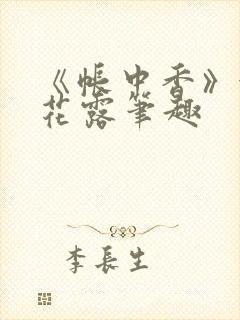 《帐中香》
花露笔趣
李长生